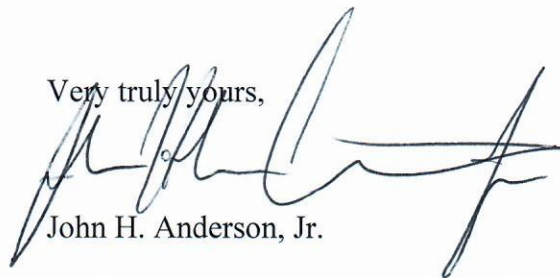 Very truly yours,
John H. Anderson, Jr.